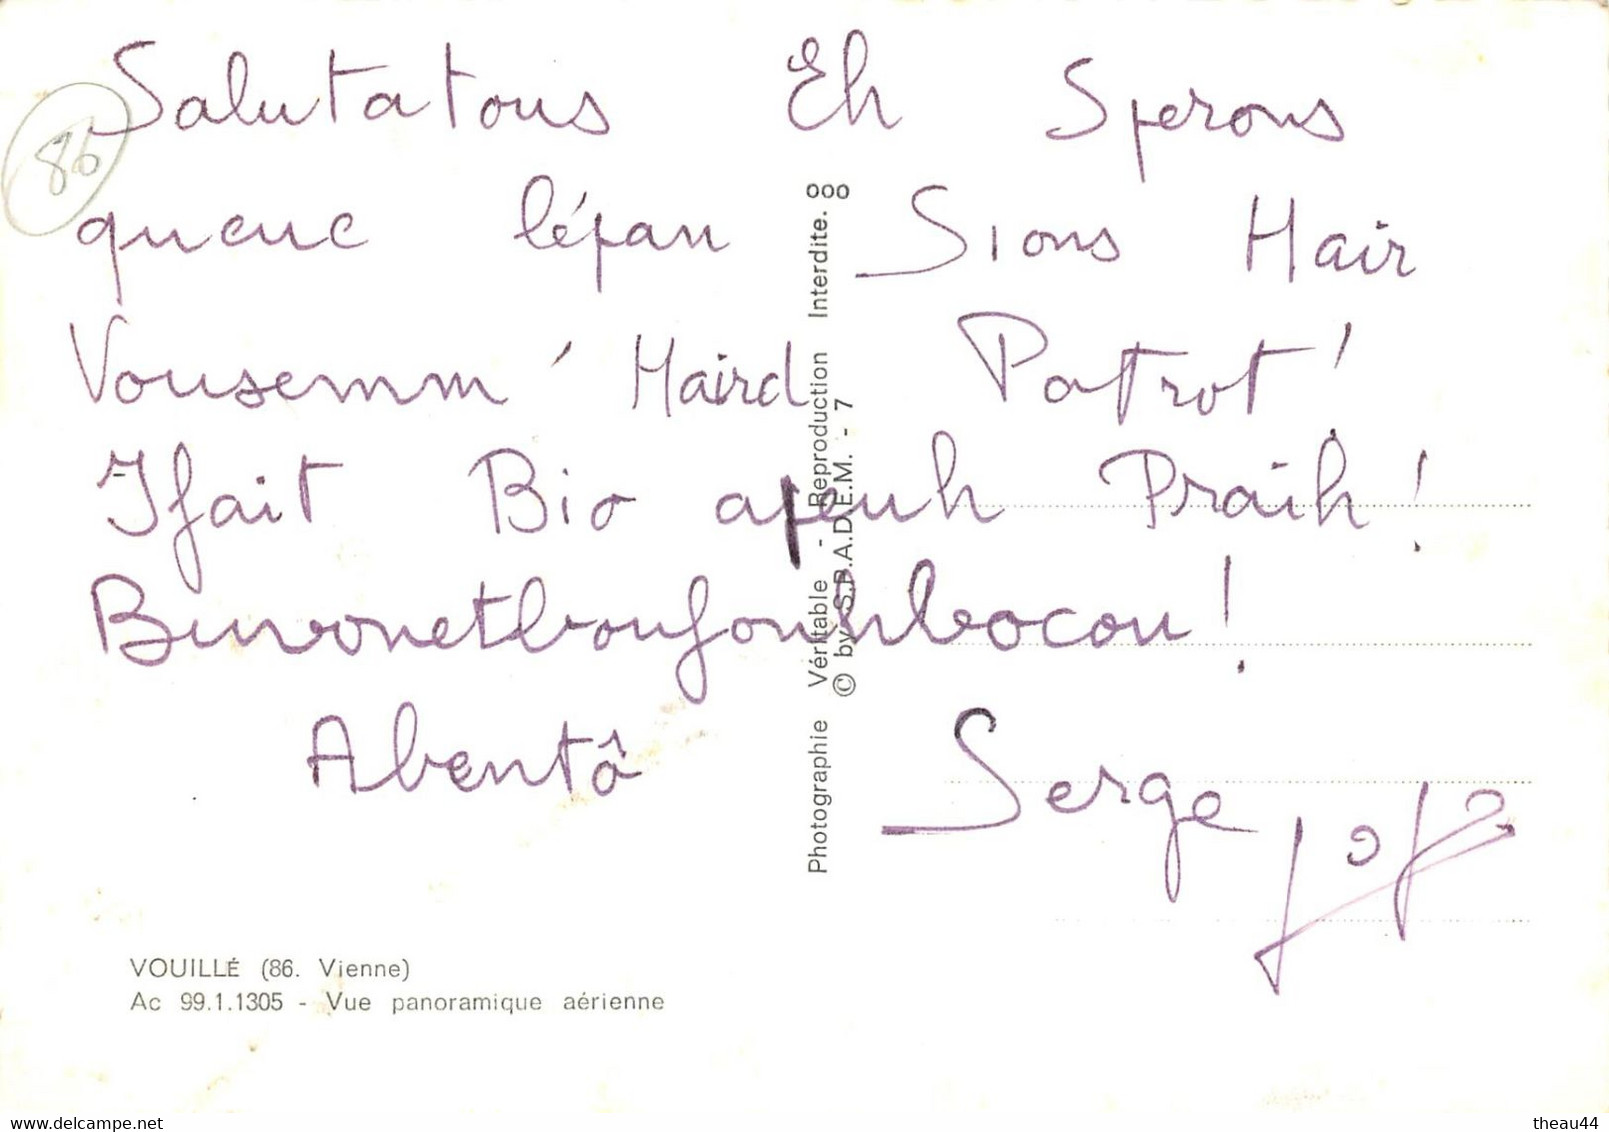 Salutatous Eh Sperons
86
queuc lépan Sions Hair
Vousemm' Haird Patrot!
Ifait Bio apeuh Praih!
Buvonetboufonhbocou!
Abentô Serge
Photographie Véritable - Reproduction Interdite.
© by S.P.A.D.E.M. - 7
VOUILLÉ (86. Vienne)
Ac 99.1.1305 - Vue panoramique aérienne
www.delcampe.net
theau44